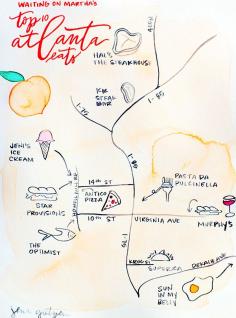 WAITING ON MARTHA'S
top 10
atlanta
eats
HAL'S
THE STEAKHOUSE
KR
STEAK
BAR
I-75
I-85
JENI'S
ICE
CREAM
STAR
PROVISIONS
THE
OPTIMIST
HOWELL MILL RD
14th ST
ANTICO
PIZZA
10th ST
I-85
PASTA DA
PULCINELLA
VIRGINIA AVE
MURPHY'S
I-75
KROG ST
SUPERICA
DEKALB AVE
SUN
IN MY
BELLY